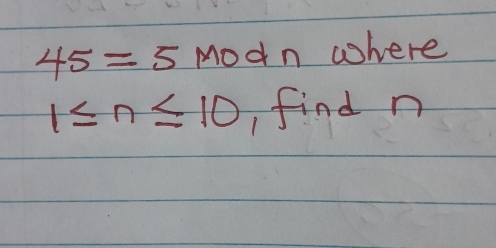 45 = 5 Mod n where
1 ≤ n ≤ 10, find n